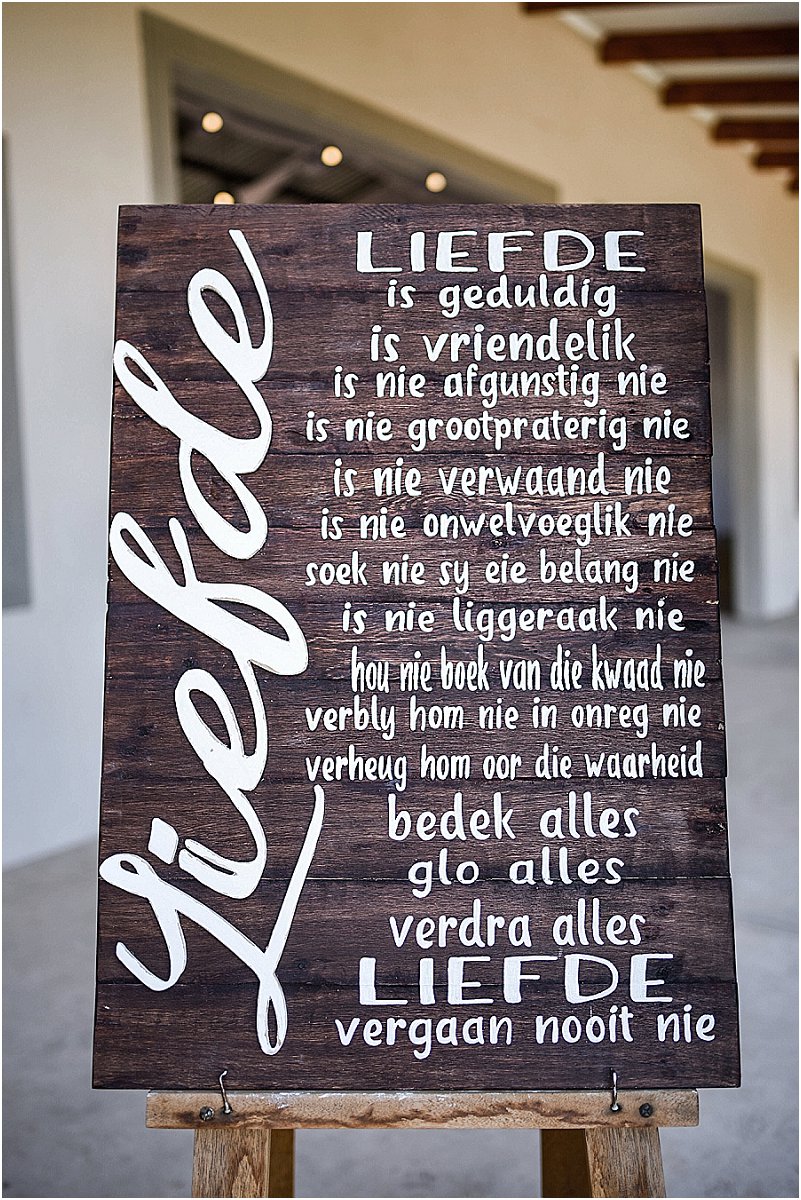 Liefde
LIEFDE
is geduldig
is vriendelik
is nie afgunstig nie
is nie grootpraterig nie
is nie verwaand nie
is nie onwelvoeglik nie
soek nie sy eie belang nie
is nie liggeraak nie
hou nie boek van die kwaad nie
verbly hom nie in onreg nie
verheug hom oor die waarheid
bedek alles
glo alles
verdra alles
LIEFDE
vergaan nooit nie